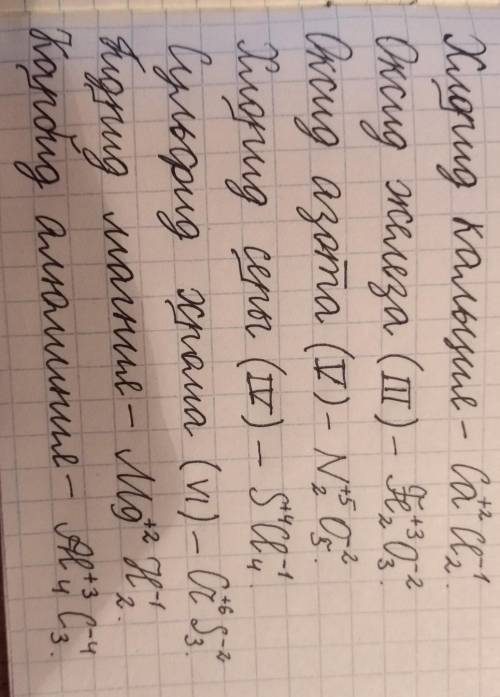 Хлорид кальция - Ca⁺²Cl₂⁻¹.
Оксид железа (III) - Fe₂⁺³O₃⁻².
Оксид азота (V) - N₂⁺⁵O₅⁻².
Хлорид серы (IV) - S⁺⁴Cl₄⁻¹.
Сульфид хрома (VI) - Cr⁺⁶S₃⁻².
Гидрид магния - Mg⁺²H₂⁻¹.
Карбид алюминия - Al₄⁺³C₃⁻⁴.